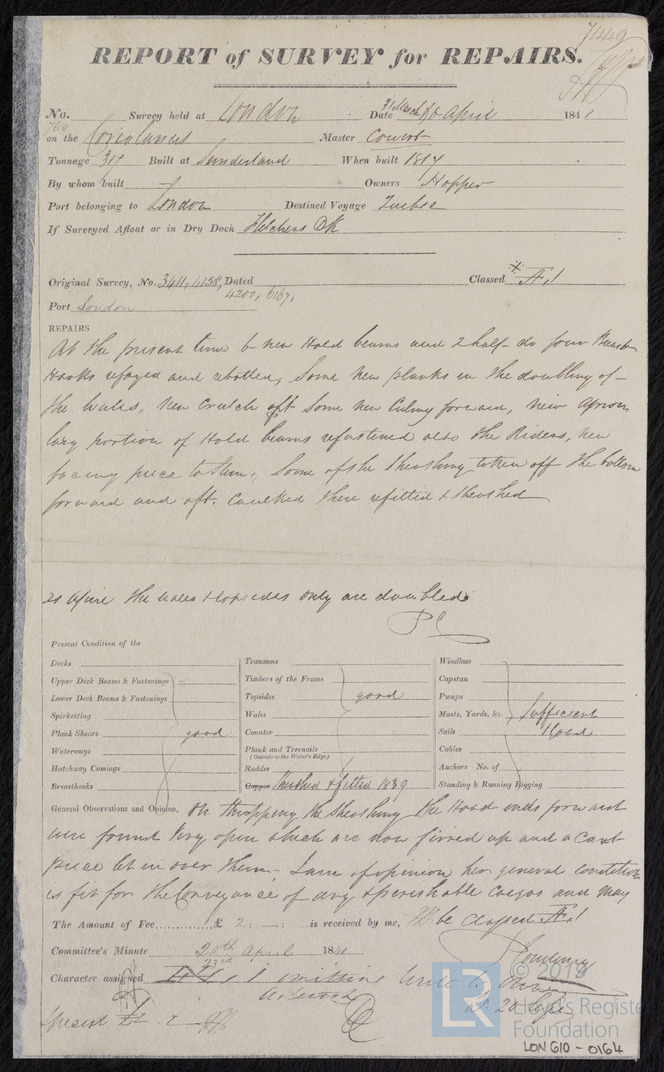 7449
REPORT of SURVEY for REPAIRS.
No. Survey held at London Date 31 March & 20 April 1841
760
on the Coriolanus Master Cowert
Tonnage 317 Built at Sunderland When built 1814
By whom built Owners Hopper
Port belonging to London Destined Voyage Quebec
If Surveyed Afloat or in Dry Dock Fletchers Dk
Original Survey, No. 3411, 4158, Dated Classed * Æ 1
4200, 6167,
Port London
REPAIRS
At the present time 6 new Hold beams and 2 half do four Breast
Hooks refayed and rebolted, Some New planks in the doubling of
the Wales, New Crutch aft Some new Ceiling forward, New Apron
large portion of Hold beams refastened also the Riders, new
facing piece to Stem, Some of the Sheathing taken off the bottom
forward and aft. Caulked there refitted & Sheathed
the Wales & topsides only are doubled
Present Condition of the
Decks
Upper Deck Beams & Fastenings
Lower Deck Beams & Fastenings
Spirketting
Plank Sheers good
Waterways
Hatchway Comings
Breasthooks
Transoms
Timbers of the Frame
Topsides good
Wales
Counter
Plank and Treenails
(Outside to the Water's Edge)
Rudder
Copper Sheathed & felted 1839
Windlass
Capstan
Pumps
Masts, Yards, &c. Sufficient
Sails Good
Cables
Anchors No. of
Standing & Running Rigging
General Observations and Opinion, On stripping the Sheathing the Hood ends forward
were found very open which are now firred up and a Cant
piece let in over them. I am of opinion her general condition
is fit for the Conveyance of dry & perishable Cargos and may
The Amount of Fee............£ 2 : - : is received by me, be Classed Æ 1
Committee's Minute 20th April 1841
23rd
Character assigned
© 2019
Lloyd's Register
Foundation
LR
LON 610 - 0164